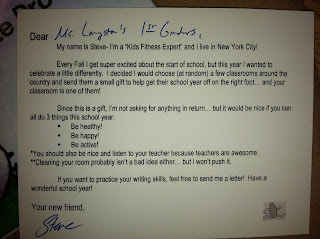 Dear Ms. Langston's 1st Graders,
My name is Steve- I'm a "Kids Fitness Expert" and I live in New York City!
Every Fall I get super excited about the start of school, but this year I wanted to
celebrate a little differently. I decided I would choose (at random) a few classrooms around the
country and send them a small gift to help get their school year off on the right foot... and your
classroom is one of them!
Since this is a gift, I'm not asking for anything in return... but it would be nice if you can
all do 3 things this school year.
• Be healthy!
• Be happy!
• Be active!
*You should also be nice and listen to your teacher because teachers are awesome.
**Cleaning your room probably isn't a bad idea either... but I won't push it.
If you want to practice your writing skills, feel free to send me a letter! Have a
wonderful school year!
Your new friend,
Steve